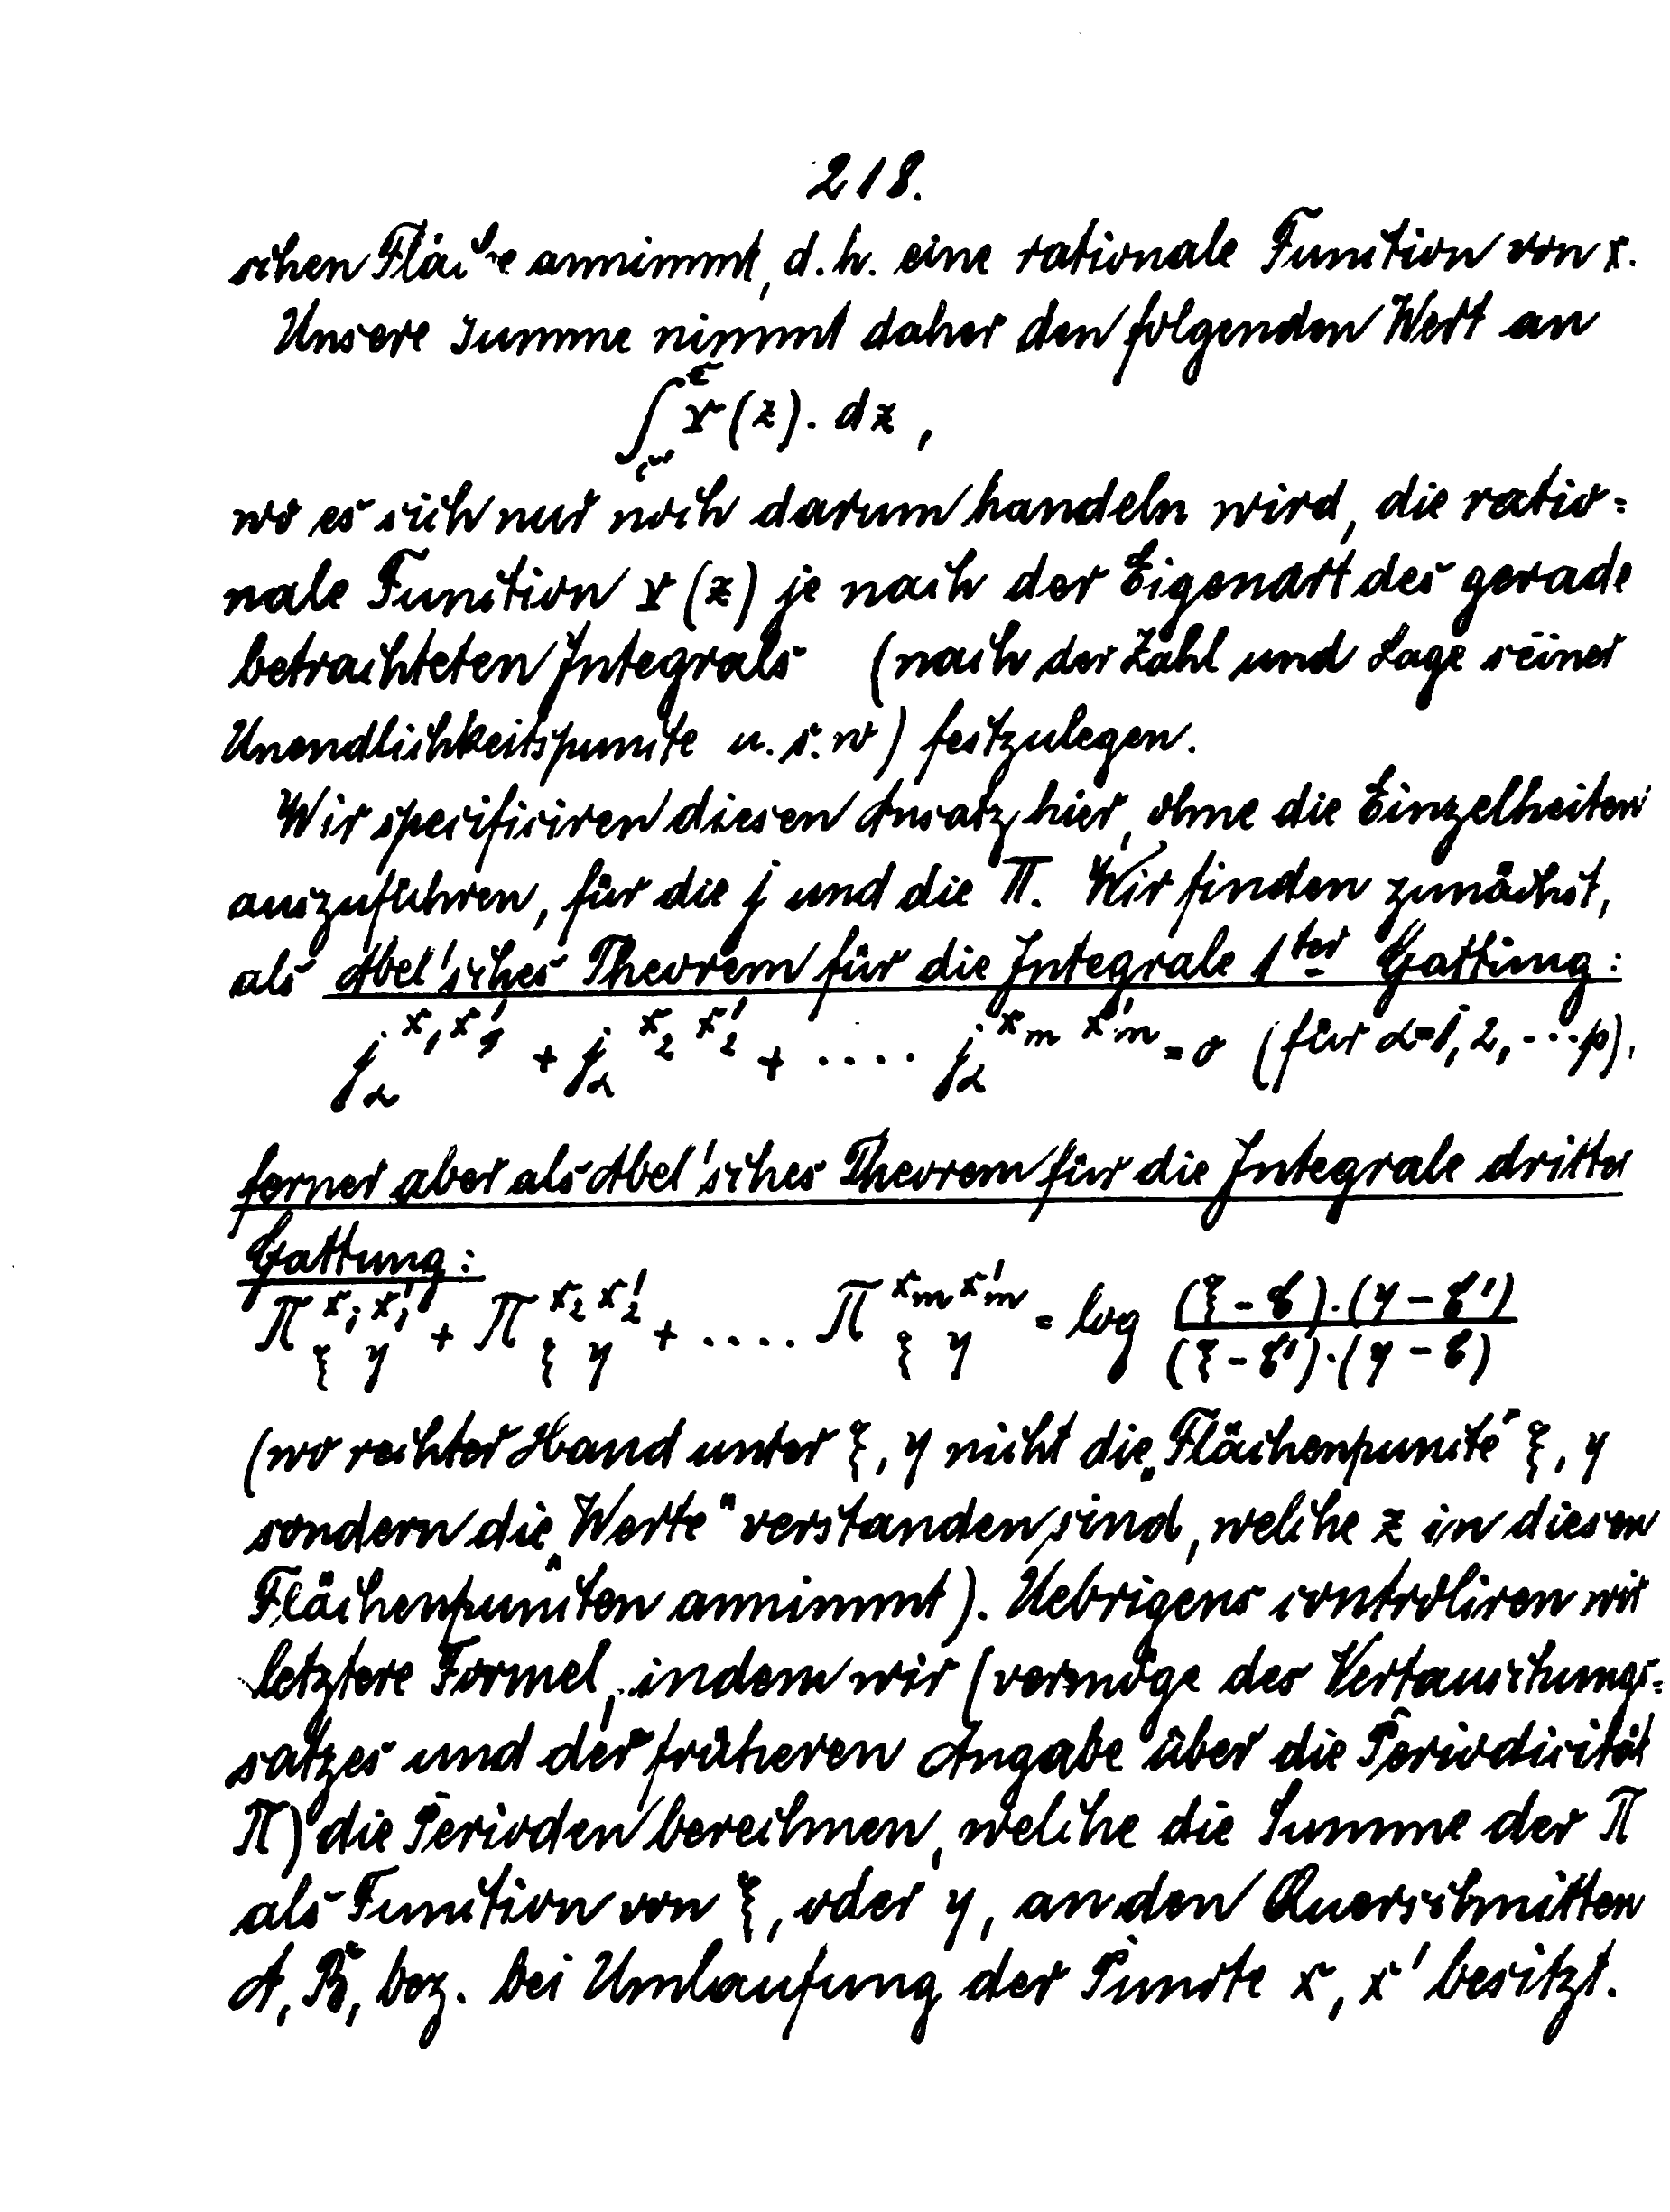 218.
schen Fläche annimmt, d. h. eine rationale Function von x.
Unsere Summe nimmt daher den folgenden Wert an
∫ r (z). dz ,
wo es sich nur noch darum handeln wird, die ratio=
nale Function r (z) je nach der Eigenart des gerade
betrachteten Integrals (nach der Zahl und Lage seiner
Unendlichkeitspuncte u. s. w) festzulegen.
Wir specificiren diesen Ansatz hier, ohne die Einzelheiten
auszuführen, für die j und die Π. Wir finden zunächst,
als Abel'sches Theorem für die Integrale 1ter Gattung:
j_α^{x₁ x₁'} + j_α^{x₂ x₂'} + .... j_α^{x_m x'_m} = 0 (für α=1, 2, ... p),
ferner aber als Abel'sches Theorem für die Integrale dritter
Gattung:
Π_{ξ η}^{x₁ x₁'} + Π_{ξ η}^{x₂ x₂'} + .... Π_{ξ η}^{x_m x'_m} = log \frac{(ξ - ϭ).(η - ϭ')}{(ξ - ϭ').(η - ϭ)}
(wo rechter Hand unter ξ, η nicht die „Flächenpuncte" ξ, η
sondern die „Werte" verstanden sind, welche z in diesen
Flächenpuncten annimmt). Uebrigens controliren wir
letztere Formel, indem wir (vermöge des Vertauschungs=
satzes und der früheren Angabe über die Periodicität
Π) die Perioden berechnen, welche die Summe der Π
als Function von ξ, oder η, an den Querschnitten
A, B, bez. bei Umlaufung der Puncte x, x' besitzt.